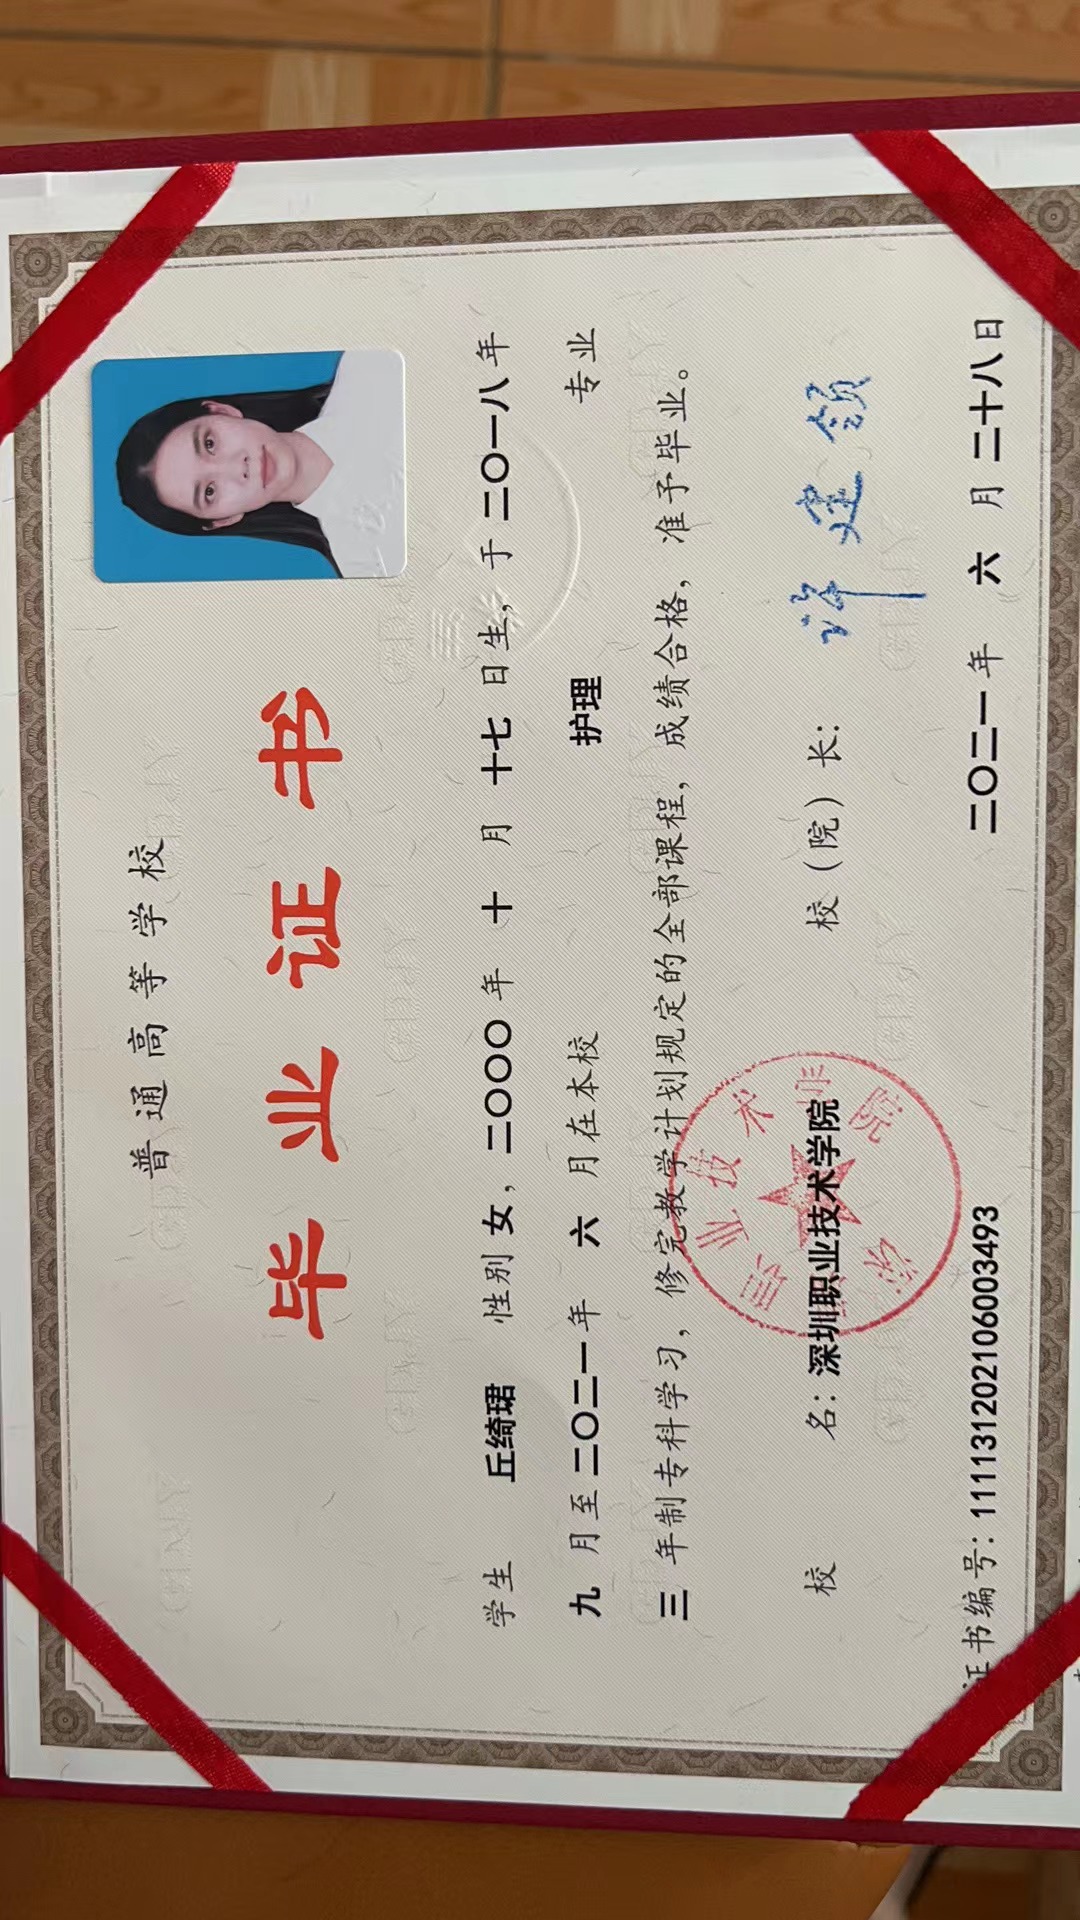 普通高等学校
毕业证书
学生 丘绮珺 性别 女，二〇〇〇年 十 月 十七 日生，于 二〇一八 年
九 月至 二〇二一 年 六 月在本校 护理 专业
三 年制专科学习，修完教学计划规定的全部课程，成绩合格，准予毕业。
校 名：深圳职业技术学院 校（院）长： 许建领
深圳职业技术学院
证书编号：111131202106003493 二〇二一 年 六 月 二十八 日